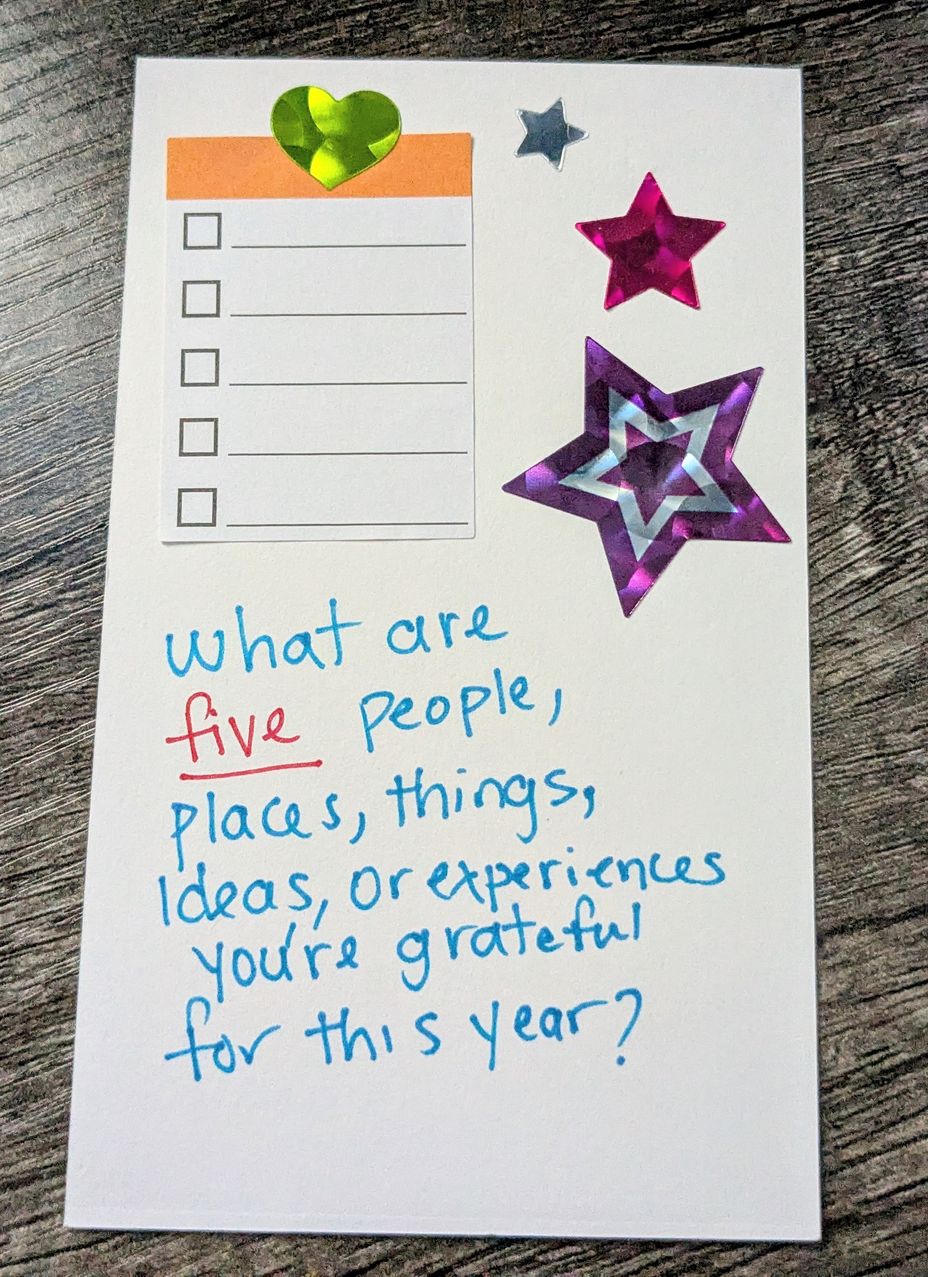 What are
five people,
places, things,
Ideas, or experiences
you're grateful
for this year?